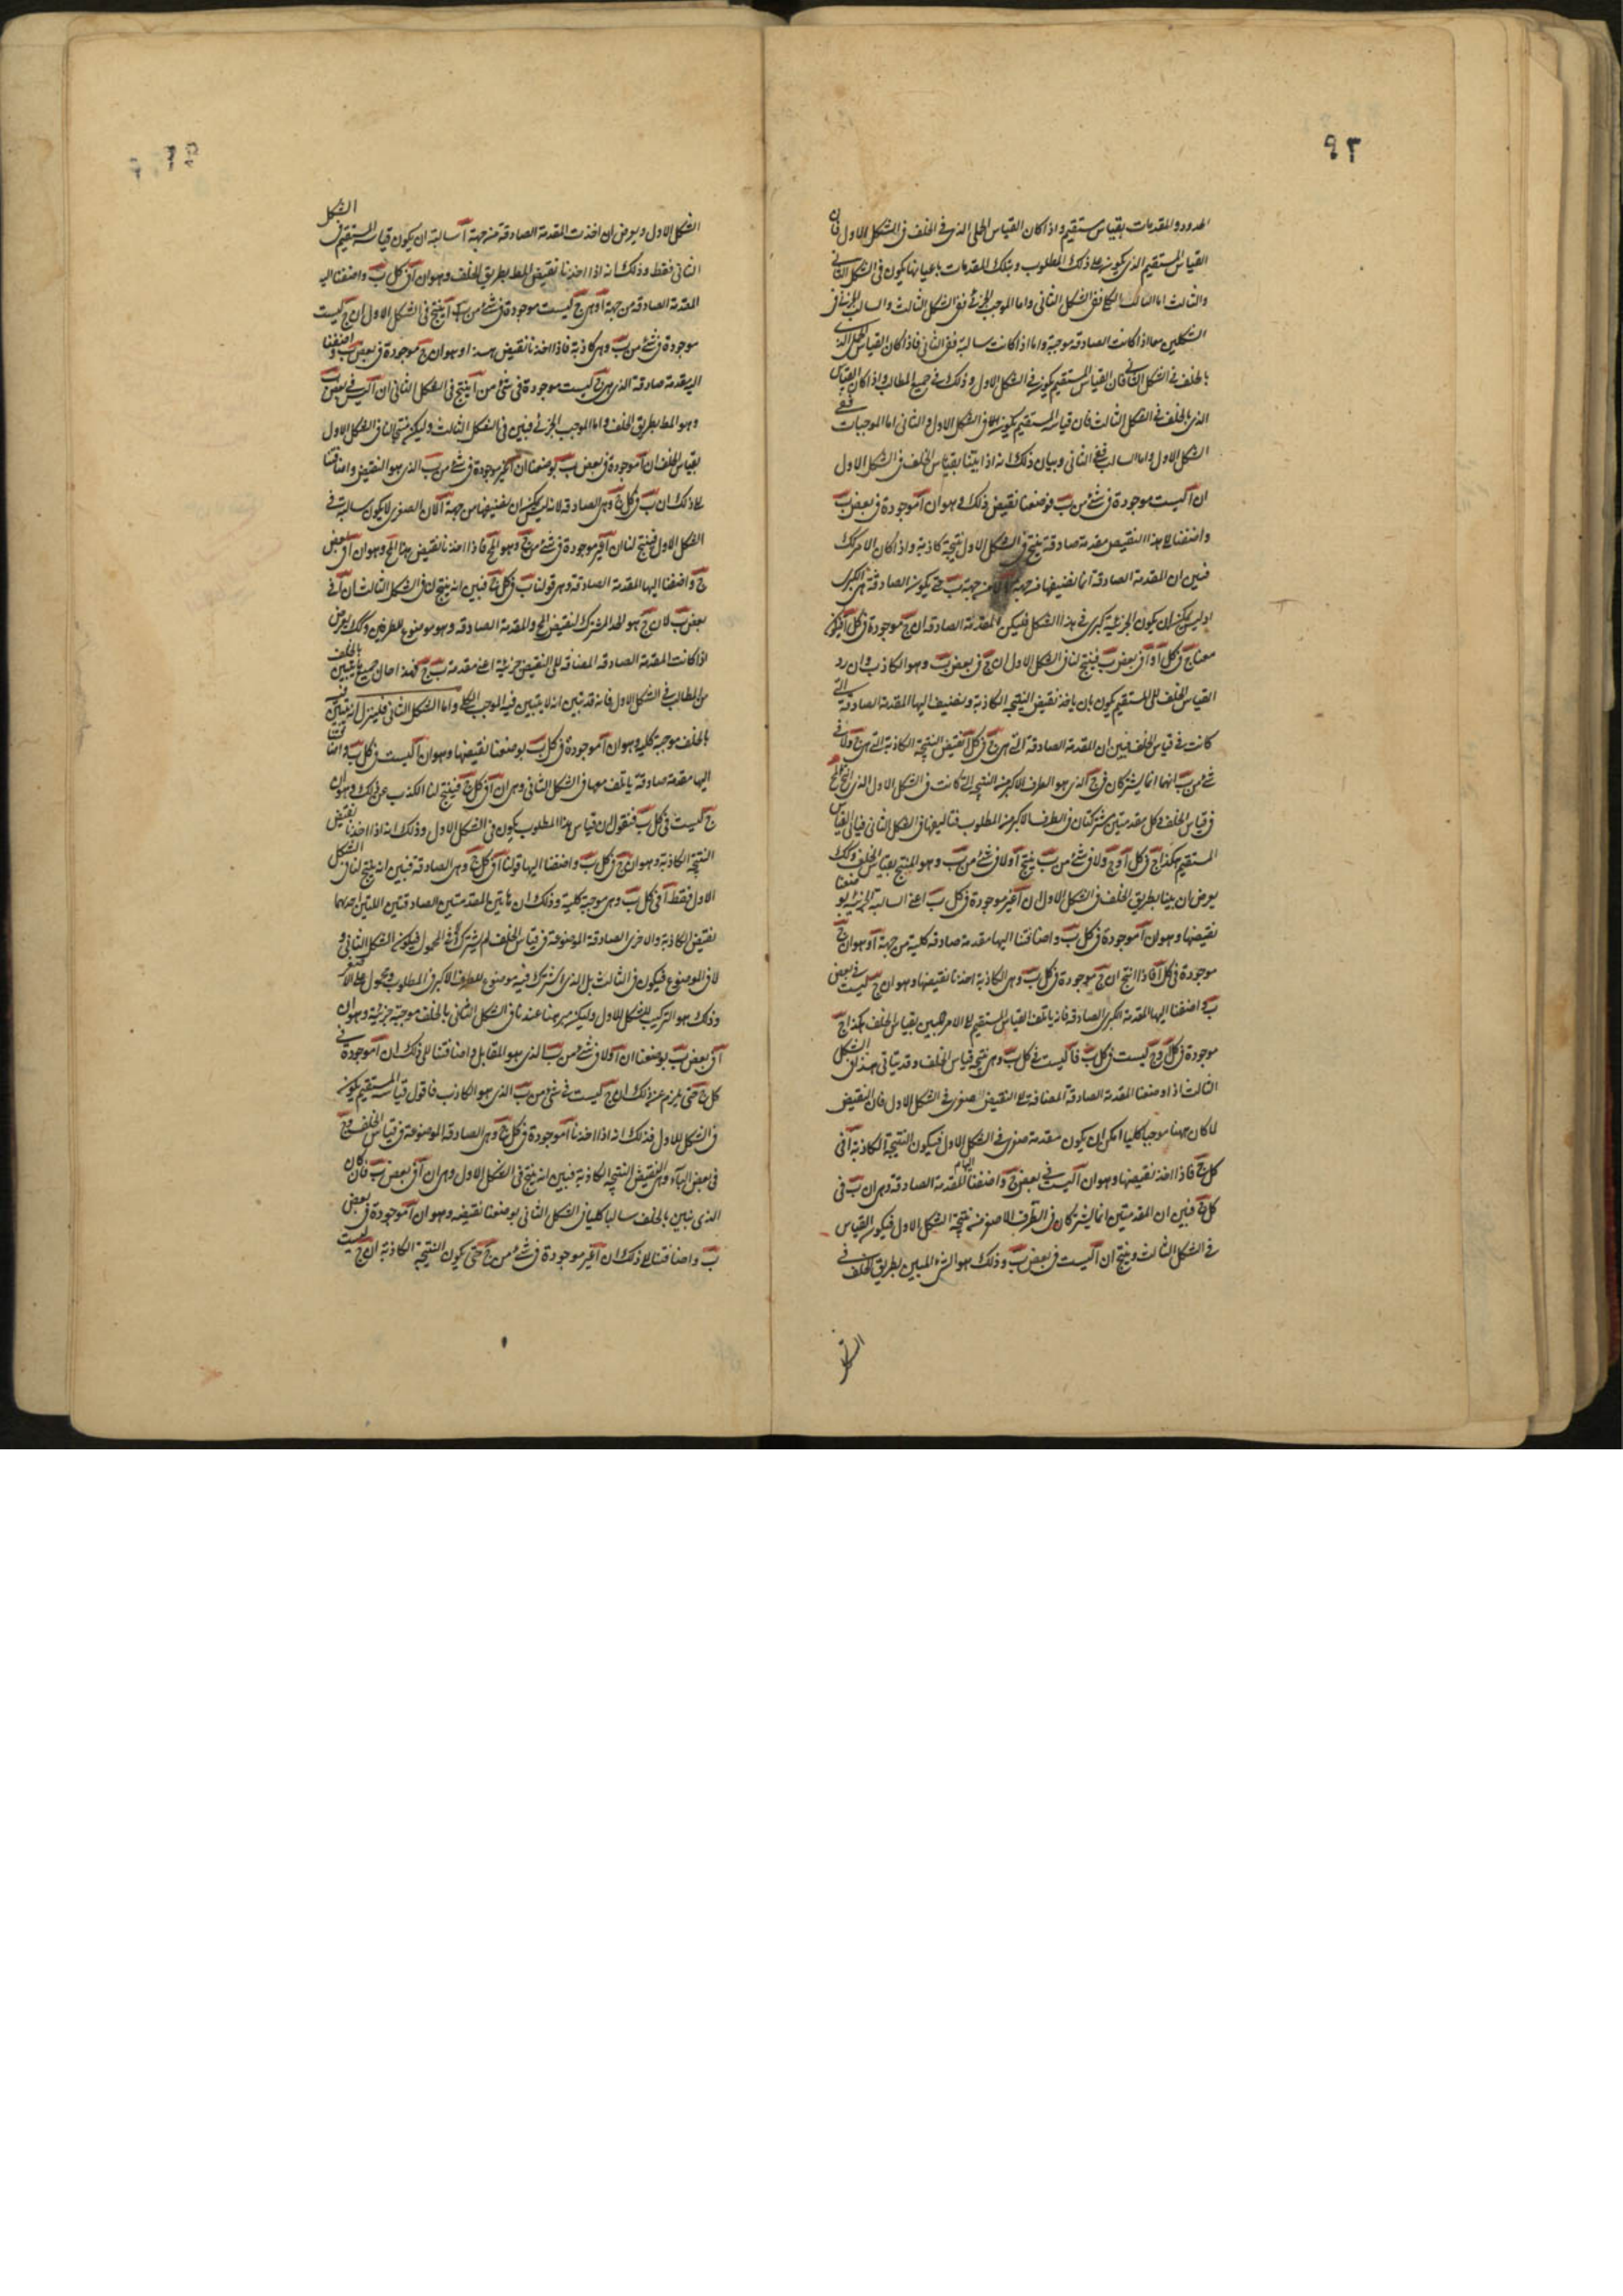 ٩٢
الحدود والمقدمات بقياس مستقيم واذا كان القياس الحملى الذى فى الخلف فى الشكل الاول فان
القياس المستقيم الذى يكون على ذلك المطلوب وبتلك المقدمات باعيانها يكون فى الشكل الثانى
والثالث اما السالب الكلى ففى الشكل الثانى واما الموجب الجزئى ففى الشكل الثالث والسالب الجزئى فى
الشكلين معا اذا كانت الصادقة موجبة واما اذا كانت سالبة ففى الثانى فاذا كان القياس الحملى الذى
بالخلف فى الشكل الثانى فان القياس المستقيم يكون فى الشكل الاول وذلك فى جميع المطالب واذا كان القياس
الذى بالخلف فى الشكل الثالث فان قياسه المستقيم يكون فى الشكل الاول والثانى اما الموجبات ففى
الشكل الاول واما السالب ففى الثانى وبيان ذلك انه اذا بيّنا بقياس الخلف فى الشكل الاول
ان آ ليست موجودة فى شئ من ب فوضعنا نقيض ذلك وهو ان آ موجودة فى بعض ب
واضفنا الى هذا النقيض مقدمة صادقة ينتج فى الشكل الاول نتيجة كاذبة واذا كان الامر كذلك
فبين ان المقدمة الصادقة انما نضيفها من جهة آ لا من جهة ب حتى يكون الصادقة هى الكبرى
اذ ليس يمكن ان يكون الجزئية كبرى فى هذا الشكل فليكن المقدمة الصادقة ان ج موجودة فى كل آ فيكون
معنا ج فى كل آ وآ فى بعض ب فينتج لنا فى الشكل الاول ان ج فى بعض ب وهو الكاذب وان رد
القياس الخلف الى المستقيم يكون بان ياخذ نقيض النتيجة الكاذبة ونضيف اليها المقدمة الصادقة التى
كانت فى قياس الخلف فبين ان المقدمة الصادقة التى هى ج فى كل آ نقيض النتيجة الكاذبة التى هى ج ولا فى
شئ من ب انهما انما يشتركان فى ج الذى هو الطرف الاكبر من النتيجة التى كانت فى الشكل الاول الذى انتج المح
فى قياس الخلف وكل مقدمتين مشتركتان فى الطرف الاكبر من المطلوب فتاليفها فى الشكل الثانى فياتى القياس
المستقيم هكذا ج فى كل آ وج ولا فى شئ من ب ينتج آ ولا فى شئ من ب وهو المنتج بقياس الخلف وكذلك
يعرض ان بينا بطريق الخلف فى الشكل الاول ان آ غير موجودة فى كل ب اعنى السالبة الجزئية بوضعنا
نقيضها وهو ان آ موجودة فى كل ب واضافتنا اليها مقدمة صادقة كلية من جهة آ وهو ان ج
موجودة فى كل آ فاذا انتج ان ج موجودة فى كل ب وهى الكاذبة اخذنا نقيضها وهو ان ج ليست فى بعض
ب واضفنا اليها المقدمة الكبرى الصادقة فانه ياتلف القياس المستقيم على الامر المبين بقياس الخلف هكذا ج
موجودة فى كل آ وج ليست فى كل ب فآ ليست فى كل ب وهى نتيجة قياس الخلف وقد يتاتى هذا فى الشكل
الثالث اذا وضعنا المقدمة الصادقة المضافة الى النقيض الصغرى فى الشكل الاول فان النقيض
لما كان ههنا موجبا كليا امكن ان يكون مقدمة صغرى فى الشكل الاول فيكون النتيجة الكاذبة آ فى
كل ج فاذا اخذ نقيضها وهو ان آ ليست فى بعض ج واضفنا اليها المقدمة الصادقة وهى ان ب فى
كل ج فبين ان المقدمتين انما يشتركان فى الطرف الاصغر من نتيجة الشكل الاول فيكون القياس
فى الشكل الثالث وينتج ان آ ليست فى بعض ب وذلك هو الشئ المبين بطريق الخلف فى
الشكل
الشكل الاول ويعرض ان اخذت المقدمة الصادقة من جهة آ سالبة ان يكون قياسه المستقيم فى الشكل
الثانى فقط وذلك انه اذا اخذنا نقيض المط بطريق الخلف وهو ان آ فى كل ب واضفنا اليه
المقدمة الصادقة من جهة آ وهى ج ليست موجودة فى شئ من آ ينتج فى الشكل الاول ان ج ليست
موجودة فى شئ من ب وهى كاذبة فاذا اخذنا نقيض هذا وهو ان ج موجودة فى بعض ب واضفنا
اليه مقدمة صادقة الذى هى ج ليست موجودة فى شئ من آ ينتج فى الشكل الثانى ان آ ليس فى بعض ب
وهو المط بطريق الخلف واما الموجب الجزئى فبين فى الشكل الثالث وليكن منتجا لنا فى الشكل الاول
بقياس الخلف ان آ موجودة فى بعض ب بوضعنا ان آ غير موجودة فى شئ من ب الذى هو النقيض واضافتنا
الى ذلك ان ب فى كل ج وهى الصادقة لانه ليس يمكن ان نضيفها من جهة آ لان الصغرى لا يكون سالبة فى
الشكل الاول فينتج لنا ان آ غير موجودة فى شئ من ج وهو المح فاذا اخذنا نقيض هذا المح وهو ان آ فى بعض
ج واضفنا اليها المقدمة الصادقة وهى قولنا ب فى كل ج فبين انه ينتج لنا فى الشكل الثالث ان آ فى
بعض ب لان ج هو الحد المشترك لنقيض المح والمقدمة الصادقة وهو موضوع للطرفين وكذلك يعرض
اذا كانت المقدمة الصادقة المضافة الى النقيض جزئية اعنى مقدمة ب ج فهذه احال جميع ما يتبين بالخلف
من المطالب فى الشكل الاول فانه قد تبين انه لا يتبين فيه الموجب الكلى واما الشكل الثانى فلينزل انه تبين فيه
بالخلف موجبة كلية وهو ان آ موجودة فى كل ب بوضعنا نقيضها وهو ان آ ليست فى كل ب واضفنا
اليها مقدمة صادقة ياتلف معها فى الشكل الثانى وهى ان آ فى كل ج فينتج لنا الكذب عن ذلك وهو ان
ج ليست فى كل ب فنقول ان قياس هذا المطلوب يكون فى الشكل الاول وذلك انه اذا اخذنا نقيض
النتيجة الكاذبة وهو ان ج فى كل ب واضفنا اليها قولنا آ فى كل ج وهى الصادقة فبين انه ينتج لنا فى الشكل
الاول فقط آ فى كل ب وهى موجبة كلية وذلك ان هاتين المقدمتين الصادقتين اللتين احدهما
نقيض الكاذبة والاخرى الصادقة الموضوعة فى قياس الخلف لم يشترك فى المحمول فيكون فى الشكل الثانى و
لا فى الموضوع فيكون فى الثالث بل الذى اشترك فيه موضوع للطرف الاكبر فى المطلوب ومحمول على الاصغر
وذلك هو التركيب للشكل الاول وليكن مبرهنا عندنا فى الشكل الثانى بالخلف موجبة جزئية وهو ان
آ فى بعض ب بوضعنا ان آ ولا فى شئ من ب الذى هو المقابل واضافتنا الى ذلك ان آ موجودة فى
كل ج حتى يلزم عن ذلك ان ج ليست فى شئ من ب الذى هو الكاذب فاقول قياسه المستقيم يكون
فى الشكل الاول فذلك انه اذا اخذنا آ موجودة فى كل ج وهى الصادقة الموضوعة فى قياس الخلف وج
فى بعض الباء وهى النقيض النتيجة الكاذبة فبين انه ينتج فى الشكل الاول وهى ان آ فى بعض ب فان كان
الذى تبين بالخلف سالبا كليا فى الشكل الثانى بوضعنا نقيضه وهو ان آ موجودة فى بعض
ب واضافتنا الى ذلك ان آ غير موجودة فى شئ من ج حتى يكون النتيجة الكاذبة ان ج ليست